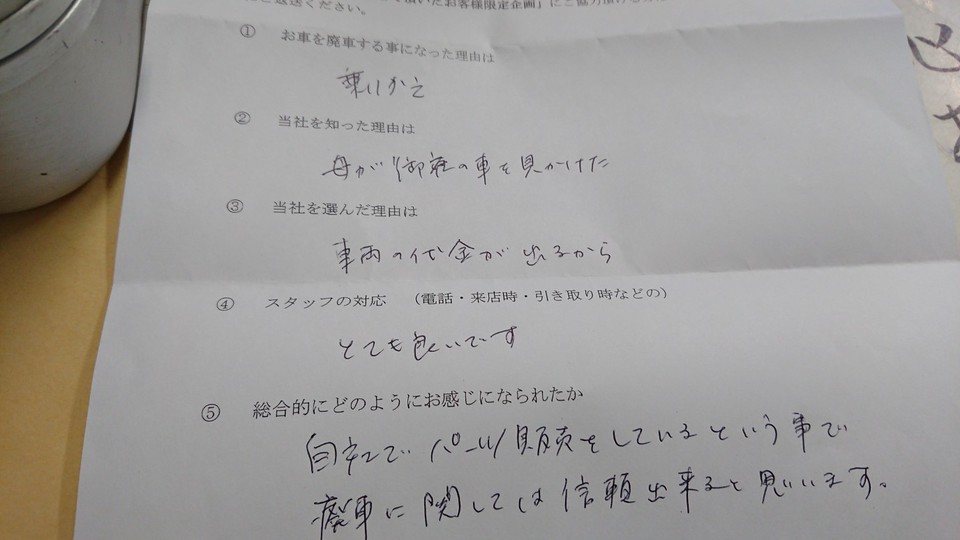 にご返送ください。
頂いたお客様限定企画」にご協力頂ける
① お車を廃車する事になった理由は
乗りかえ
② 当社を知った理由は
母が御社の車を見かけた
③ 当社を選んだ理由は
車両の代金が出るから
④ スタッフの対応 （電話・来店時・引き取り時などの）
とても良いです
⑤ 総合的にどのようにお感じになられたか
自社でパーツ販売をしているという事で
廃車に関しては信頼出来ると思いいます。